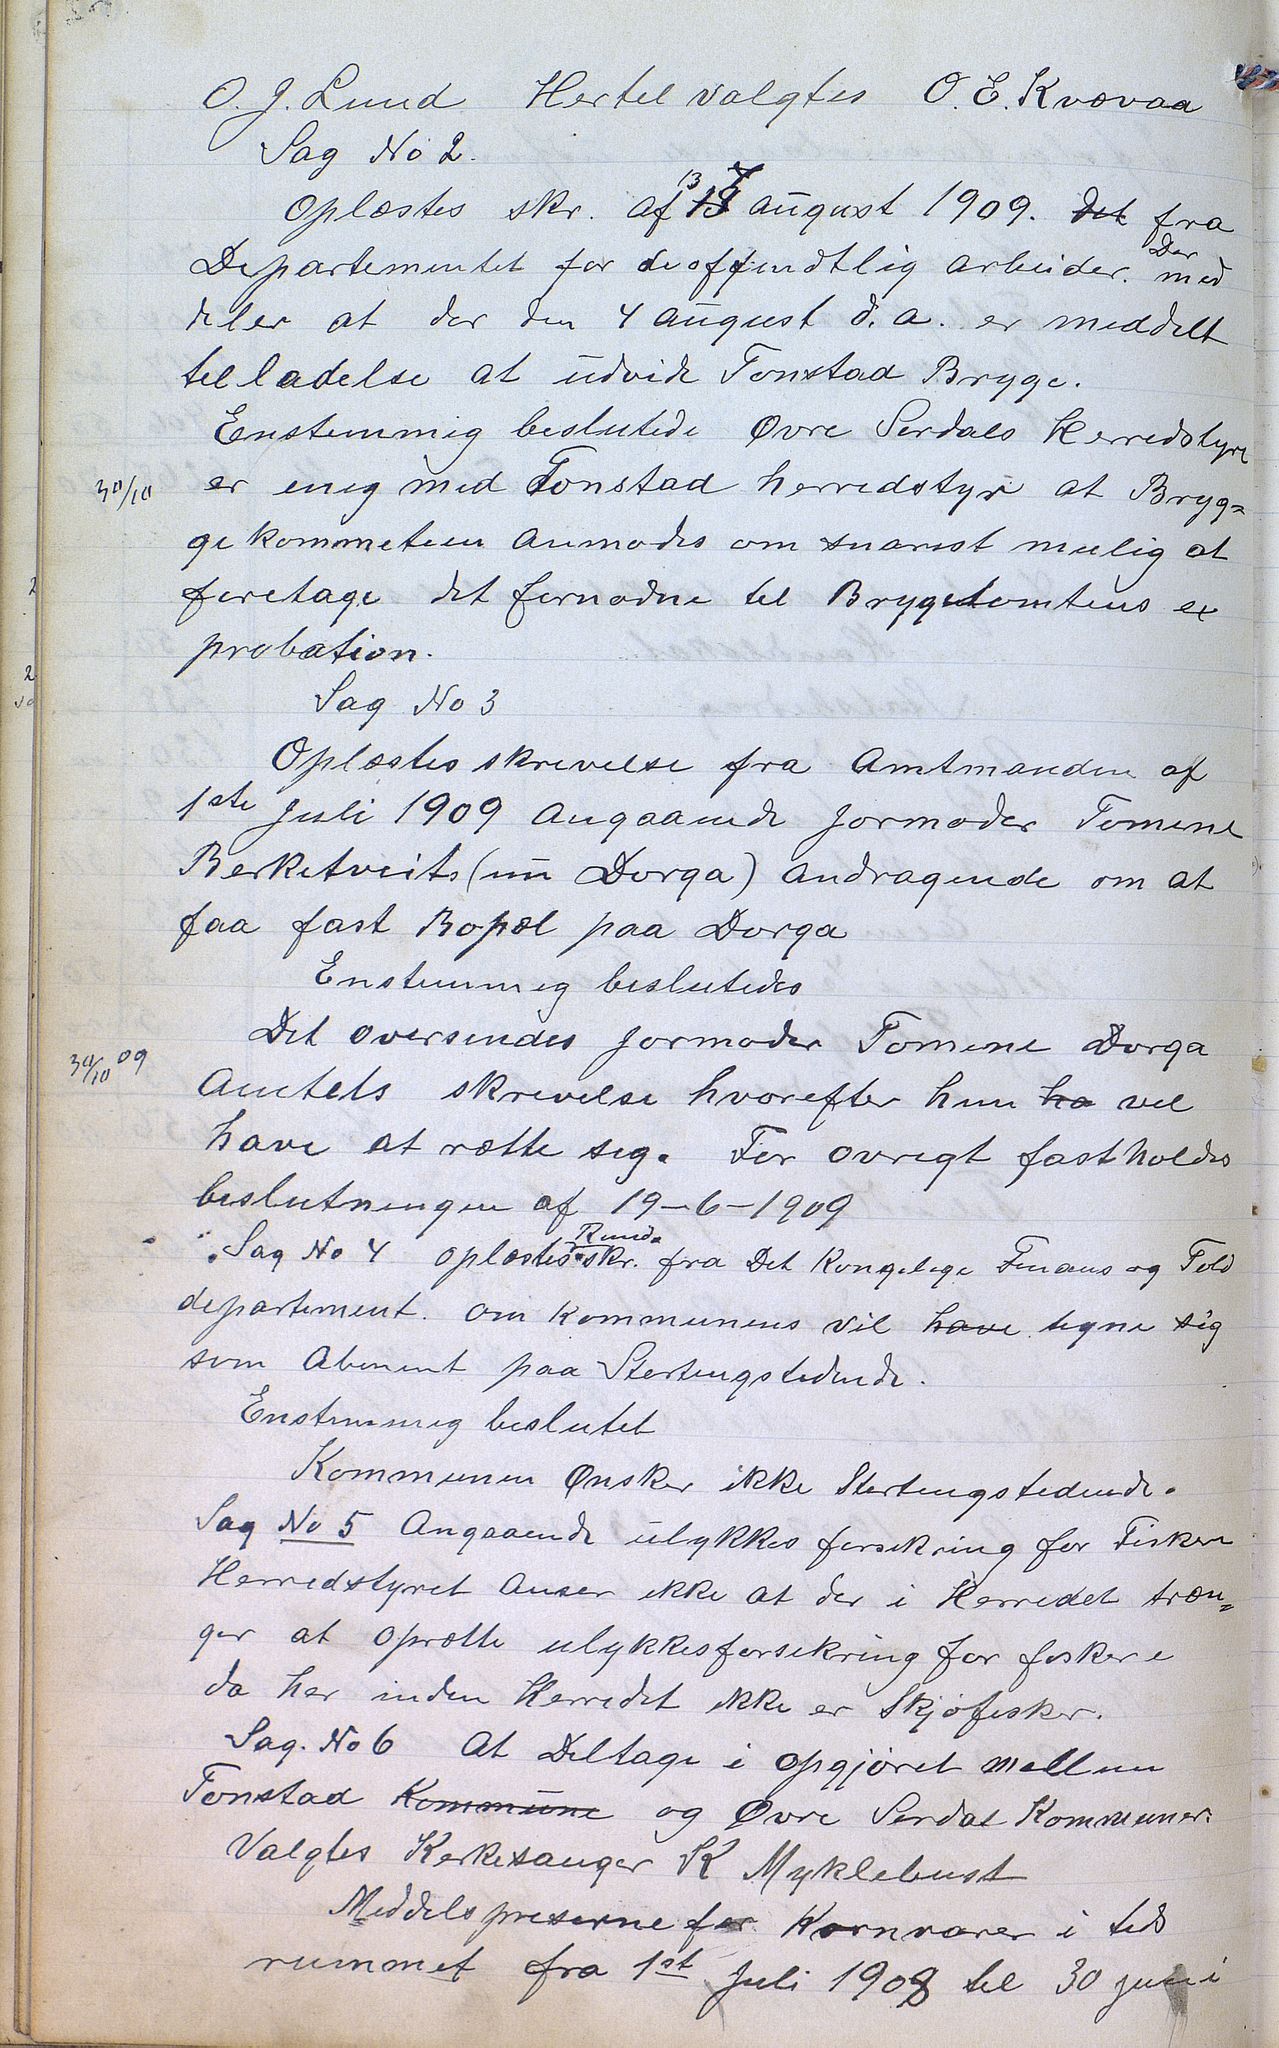 O. J. Lund Hertel valgtes O. E. Kvævaa
Sag No 2.
Oplæstes skr. af 13 august 1909. det fra
Departementet for de offendtlig arbeider. Der med
deler at der den 4 august d. a. er meddelt
telladelse at udvide Tonstad Brygge.
Enstemmig beslutede Øvre Serdals Herredstyre
30/10 er eneg med Tonstad herredstyr at Bryg=
gekommeteen anmodes om snarest mulig at
foretage det fornødne til Bryggetomtens ex
probation.
Sag No 3
Oplæstes skrevelse fra Amtmanden af
1ste Juli 1909 angaaende Jormoder Tomene
Berketveits (nu Dorga) andragende om at
faa fast Bopæl paa Dorga
Enstemmig beslutedes
Det oversendes Jormoder Tomene Dorga
30/10 09 Amtets skrevelse hvorefter hun ha vel
have at rette seg. For øvrigt fastholdes
beslutningen af 19-6-1909
Sag No 4 oplæstes Rund. skr. fra Det Kongelege Finans og Told
departement. om Kommunens vil have tegne sig
som Abonent paa Stortengstedende.
Enstemmig beslutet
Kommunen Ønsker ikke Stortengstedende.
Sag No 5 Angaaende ulykkes forsikring for Fiskere
Herredstyret anser ikke at der i Herredet træn=
ger at oprette ulykkesforsikring for fiskere
da her inden Herredet ikke er Skjøfisker.
Sag. No 6 At Deltage i opgjøret mellem
Tonstad Kommune og Øvre Serdal Kommuner.
Valgtes Kerkesanger K Myklebust
Meddelspreserne for Kornvarer i teds
rummet fra 1st Juli 1908 tel 30 juni